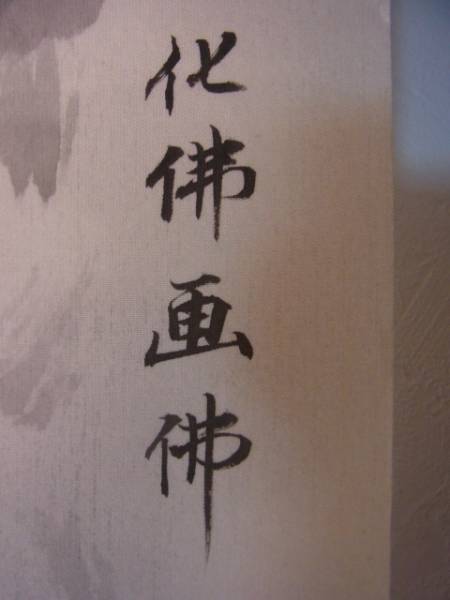 化佛画佛